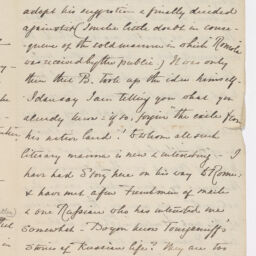 adopt his suggestion & finally decided
against it (I make little doubt in conse-
quence of the cold manner in which 'Romola'
was received by the public.) It was only
then that B. took up the idea himself.
I daresay I am telling you what you
already know: if so, forgive the exile from
his native land! to whom all such
literary manna is new & interesting – I
have had Story here on his way to Rome,
& have met a few Frenchmen of mark
& one Russian who has interested me
somewhat – Do you know Tourgueneff's
stories of Russian life? They are too